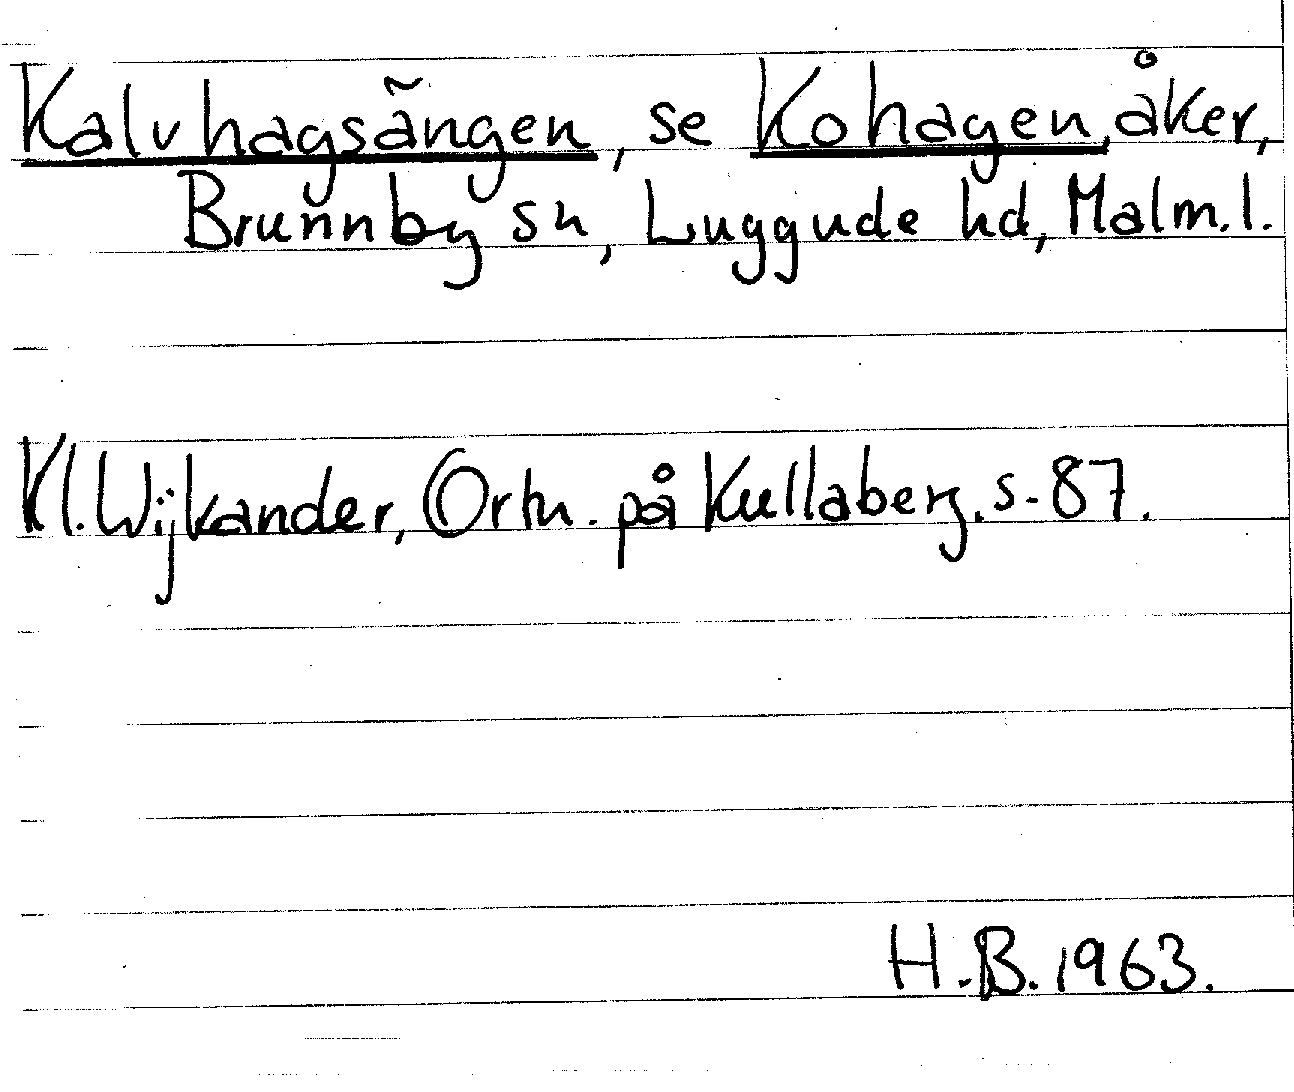 Kalvhagsängen, se Kohagen, åker,
Brunnby sn, Luggude hd, Malm. l.
Kl. Wijkander, Ortn. på Kullaberg. s. 87.
H.B. 1963.